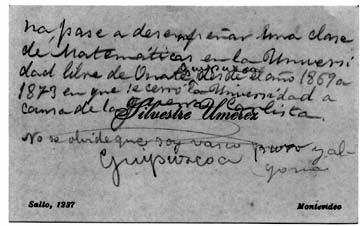 na pase a desempeñar una clase
de Matemáticas en la Universi
dad libre de Oñate, Guipuzcoa desde el año 1869 a
1873 en que se cerró la Universidad a
causa de la guerra Carlista.
Silvestre Umerez
No se olvide que soy vasco puro y al
Guipuzcoa
Salto, 1237 Montevideo